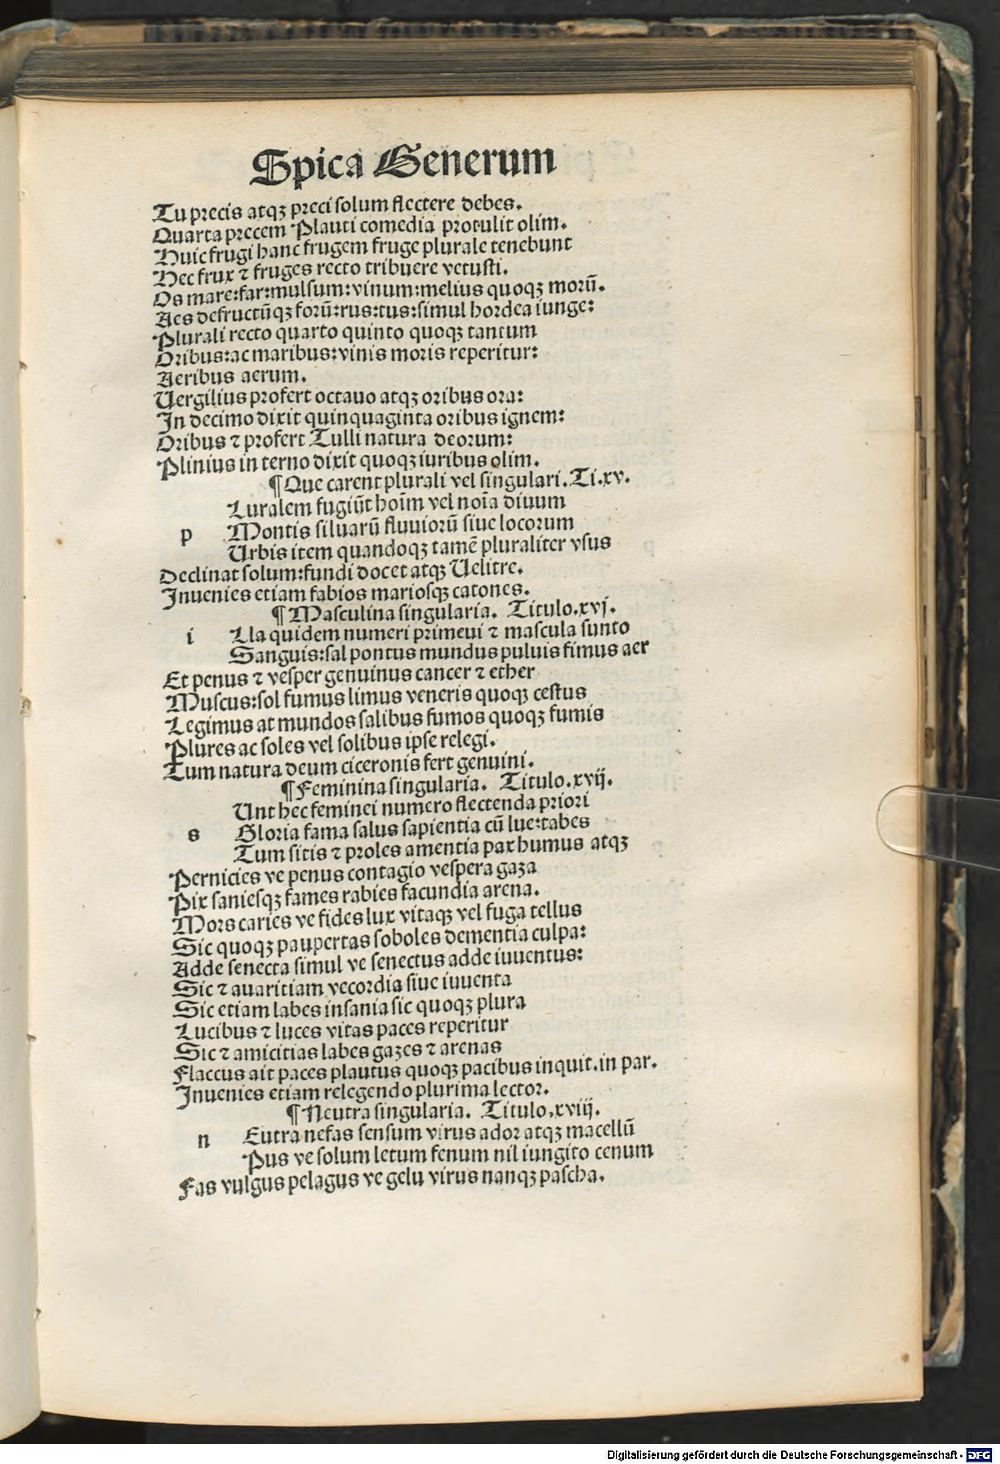 Spica Generum
Tu precis atqꝫ preci solum flectere debes.
Quarta precem Plauti comedia protulit olim.
Huic frugi hanc frugem fruge plurale tenebunt
Hec frux ⁊ fruges recto tribuere vetusti.
Os mare:far:mulsum:vinum:melius quoqꝫ morū.
Aes defructūqꝫ forū:rus:tus:simul hordea iunge:
Plurali recto quarto quinto quoqꝫ tantum
Oribus:ac maribus:vinis moris reperitur:
Aeribus aerum.
Vergilius profert octauo atqꝫ oribus ora:
In decimo dixit quinquaginta oribus ignem:
Oribus ⁊ profert Tulli natura deorum:
Plinius in terno dixit quoqꝫ iuribus olim.
¶ Que carent plurali vel singulari. Ti.xv.
Luralem fugiūt hoīm vel noīa diuum
p Montis siluarū fluuiorū siue locorum
Urbis item quandoqꝫ tamē pluraliter vsus
Declinat solum:fundi docet atqꝫ Uelitre.
Inuenies etiam fabios mariosqꝫ catones.
¶ Masculina singularia. Titulo.xvj.
i Lla quidem numeri primeui ⁊ mascula sunto
Sanguis:sal pontus mundus puluis fimus aer
Et penus ⁊ vesper genuinus cancer ⁊ ether
Muscus:sol fumus limus veneris quoqꝫ cestus
Legimus at mundos salibus fumos quoqꝫ fumis
Plures ac soles vel solibus ipse relegi.
Tum natura deum ciceronis fert genuini.
¶ Feminina singularia. Titulo.xvij.
Unt hec feminei numero flectenda priori
s Gloria fama salus sapientia cū lue:tabes
Tum sitis ⁊ proles amentia pax humus atqꝫ
Pernicies ve penus contagio vespera gaza
Pix saniesqꝫ fames rabies facundia arena.
Mors caries ve fides lux vitaqꝫ vel fuga tellus
Sic quoqꝫ paupertas soboles dementia culpa:
Adde senecta simul ve senectus adde iuuentus:
Sic ⁊ auaritiam vecordia siue iuuenta
Sic etiam labes insania sic quoqꝫ plura
Lucibus ⁊ luces vitas paces reperitur
Sic ⁊ amicitias labes gazes ⁊ arenas
Flaccus ait paces plautus quoqꝫ pacibus inquit.in par.
Inuenies etiam relegendo plurima lector.
¶ Neutra singularia. Titulo.xviij.
n Eutra nefas sensum virus ador atqꝫ macellū
Pus ve solum letum fenum nil iungito cenum
Fas vulgus pelagus ve gelu virus nanqꝫ pascha.
Digitalisierung gefördert durch die Deutsche Forschungsgemeinschaft - DFG